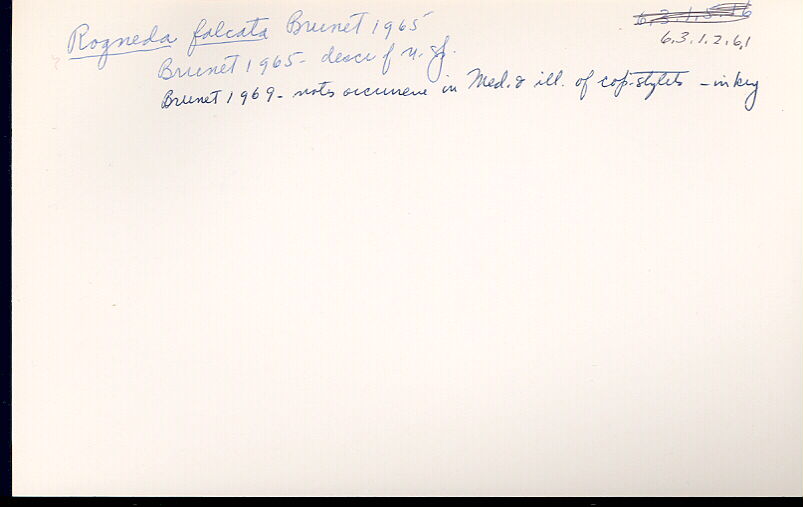 Rogneda falcata Brunet 1965
6.3.1.2.6.1
Brunet 1965 - descr of n. sp.
Brunet 1969 - notes occurrence in Med. & ill. of cop. stylets - in key